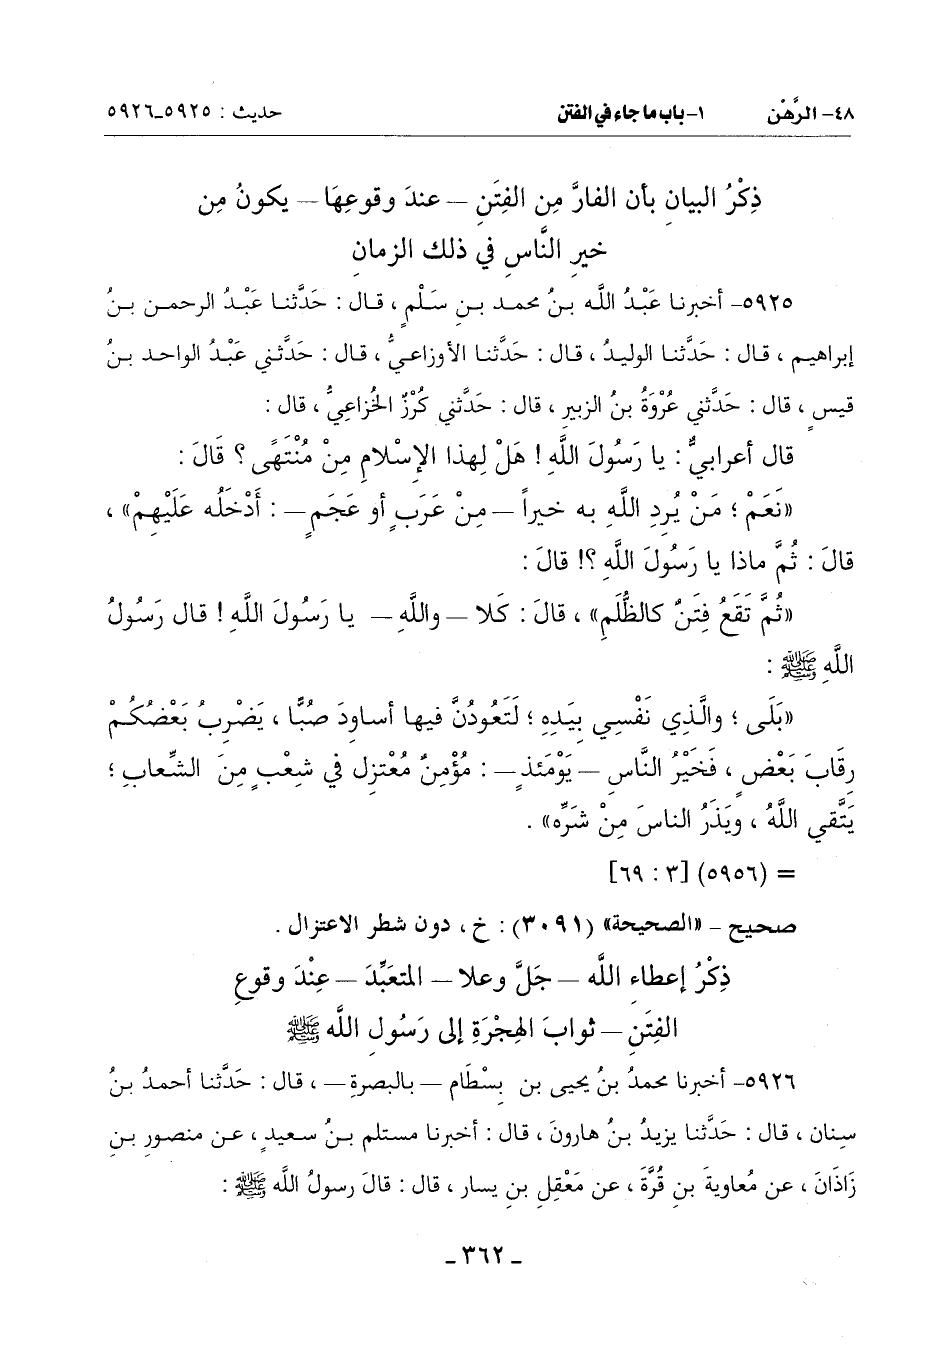 ٤٨- الرَّهْن ١- باب ما جاء في الفتن حديث : ٥٩٢٥-٥٩٢٦
ذِكْرُ البيانِ بأن الفارَّ مِن الفِتَنِ – عندَ وقوعِهَا – يكونُ مِن
خيرِ النَّاسِ في ذلك الزمانِ
٥٩٢٥- أخبرنا عَبْدُ اللَّه بنُ محمد بنِ سَلْمٍ ، قال : حَدَّثنا عَبْدُ الرحمن بنُ
إبراهيم ، قال : حَدَّثنا الوليدُ ، قال : حَدَّثنا الأوزاعيُّ ، قال : حَدَّثني عَبْدُ الواحد بنُ
قيسٍ ، قال : حَدَّثني عُرْوَةُ بنُ الزبير ، قال : حَدَّثني كُرْزٌ الخُزاعيُّ ، قال :
قال أعرابيٌّ : يا رَسُولَ اللَّهِ ! هَلْ لِهذا الإسْلامِ مِنْ مُنْتَهًى ؟ قَالَ :
«نَعَمْ ؛ مَنْ يُرِدِ اللَّهِ به خيراً – مِنْ عَرَبٍ أو عَجَمٍ – : أَدْخَلَه عَلَيْهِمْ» ،
قالَ : ثُمَّ ماذا يا رَسُولَ اللَّهِ ؟! قالَ :
«ثُمَّ تَقَعُ فِتَنٌ كالظُّلَمِ» ، قالَ : كَلا – واللَّهِ – يا رَسُولَ اللَّهِ ! قال رَسُولُ
اللَّهِ ﷺ :
«بَلَى ؛ والَّذِي نَفْسِي بِيَدِهِ ؛ لَتَعُودُنَّ فيها أساوِدَ صُبًّا ، يَضْرِبُ بَعْضُكُمْ
رِقَابَ بَعْضٍ ، فَخَيْرُ النَّاسِ – يَوْمَئذٍ – : مُؤْمِنٌ مُعْتَزِل في شِعْبٍ مِنَ الشِّعابِ ؛
يَتَّقي اللَّهُ ، ويَذَرُ الناسَ مِنْ شَرِّه» .
= (٥٩٥٦) [٣ : ٦٩]
صحيح – «الصحيحة» (٣٠٩١) : خ ، دون شطر الاعتزال .
ذِكْرُ إعطاءِ اللَّه – جَلَّ وعلا – المتعَبِّدَ – عِنْدَ وقوعِ
الفِتَنِ – ثوابَ الهِجْرَةِ إلى رَسُولِ اللَّه ﷺ
٥٩٢٦- أخبرنا محمدُ بنُ يحيى بن بِسْطَام – بالبصرةِ – ، قال : حَدَّثنا أحمدُ بنُ
سِنان ، قال : حَدَّثنا يزيدُ بنُ هارونَ ، قال : أخبرنا مستلم بنُ سعيدٍ ، عن منصور بنِ
زَاذَانَ ، عن مُعاويةَ بنِ قُرَّةَ ، عن مَعْقِلِ بنِ يسار ، قال : قالَ رسولُ اللَّه ﷺ :
- ٣٦٢ -